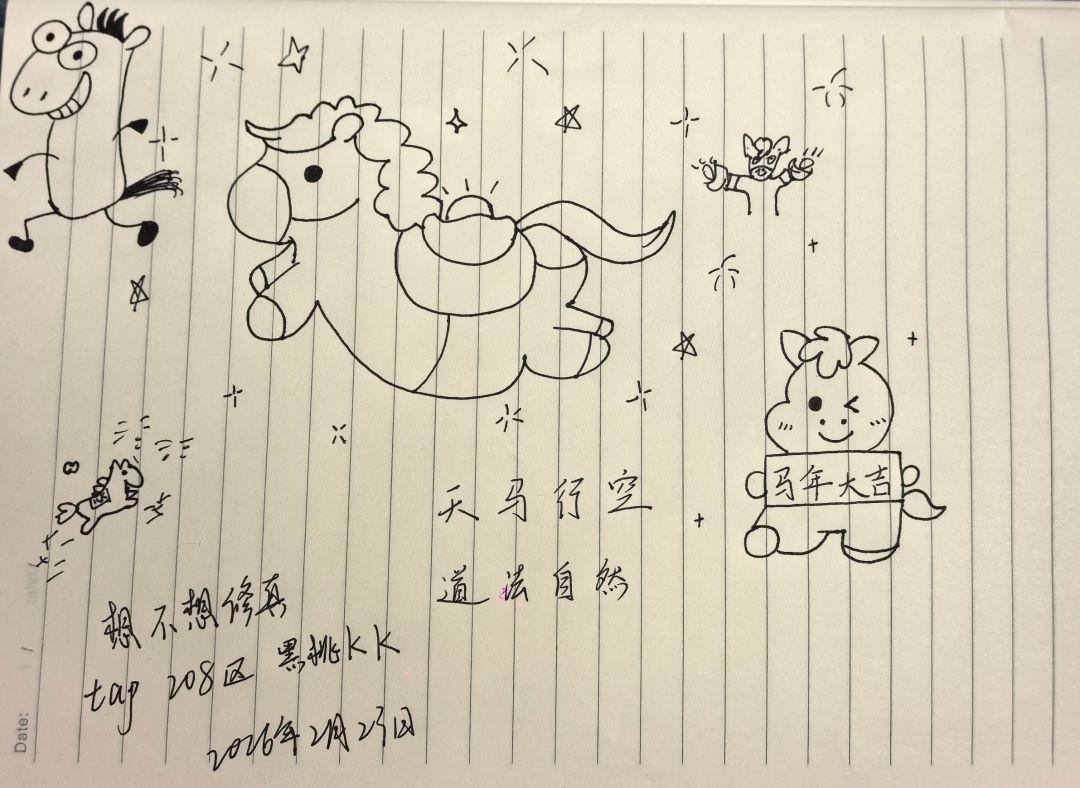 马年大吉
天马行空
道法自然
想不想修真
tap 208区 黑桃KK
2026年2月25日
Date: